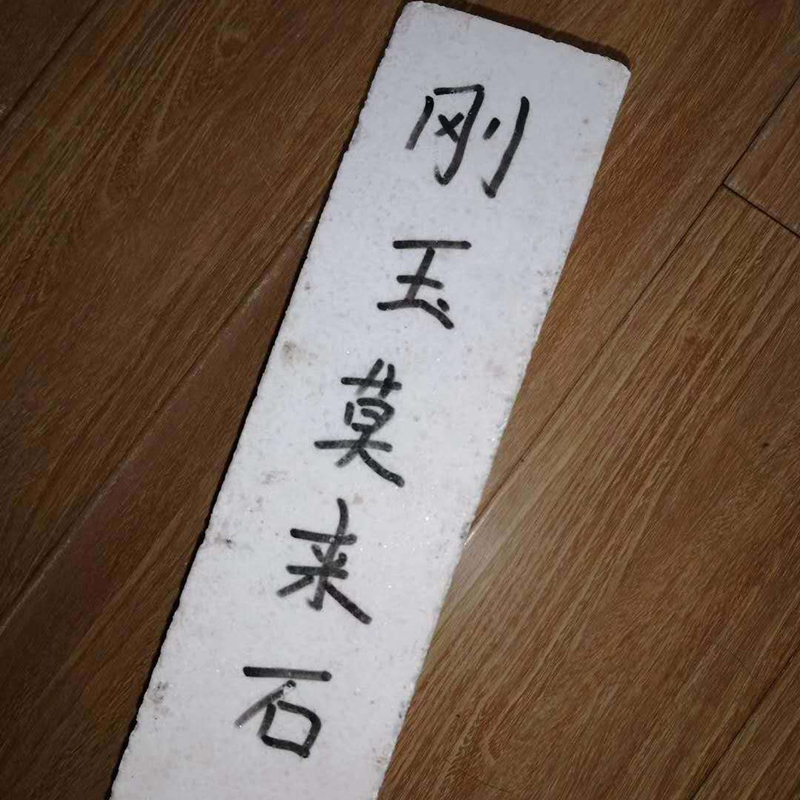 刚玉莫来石